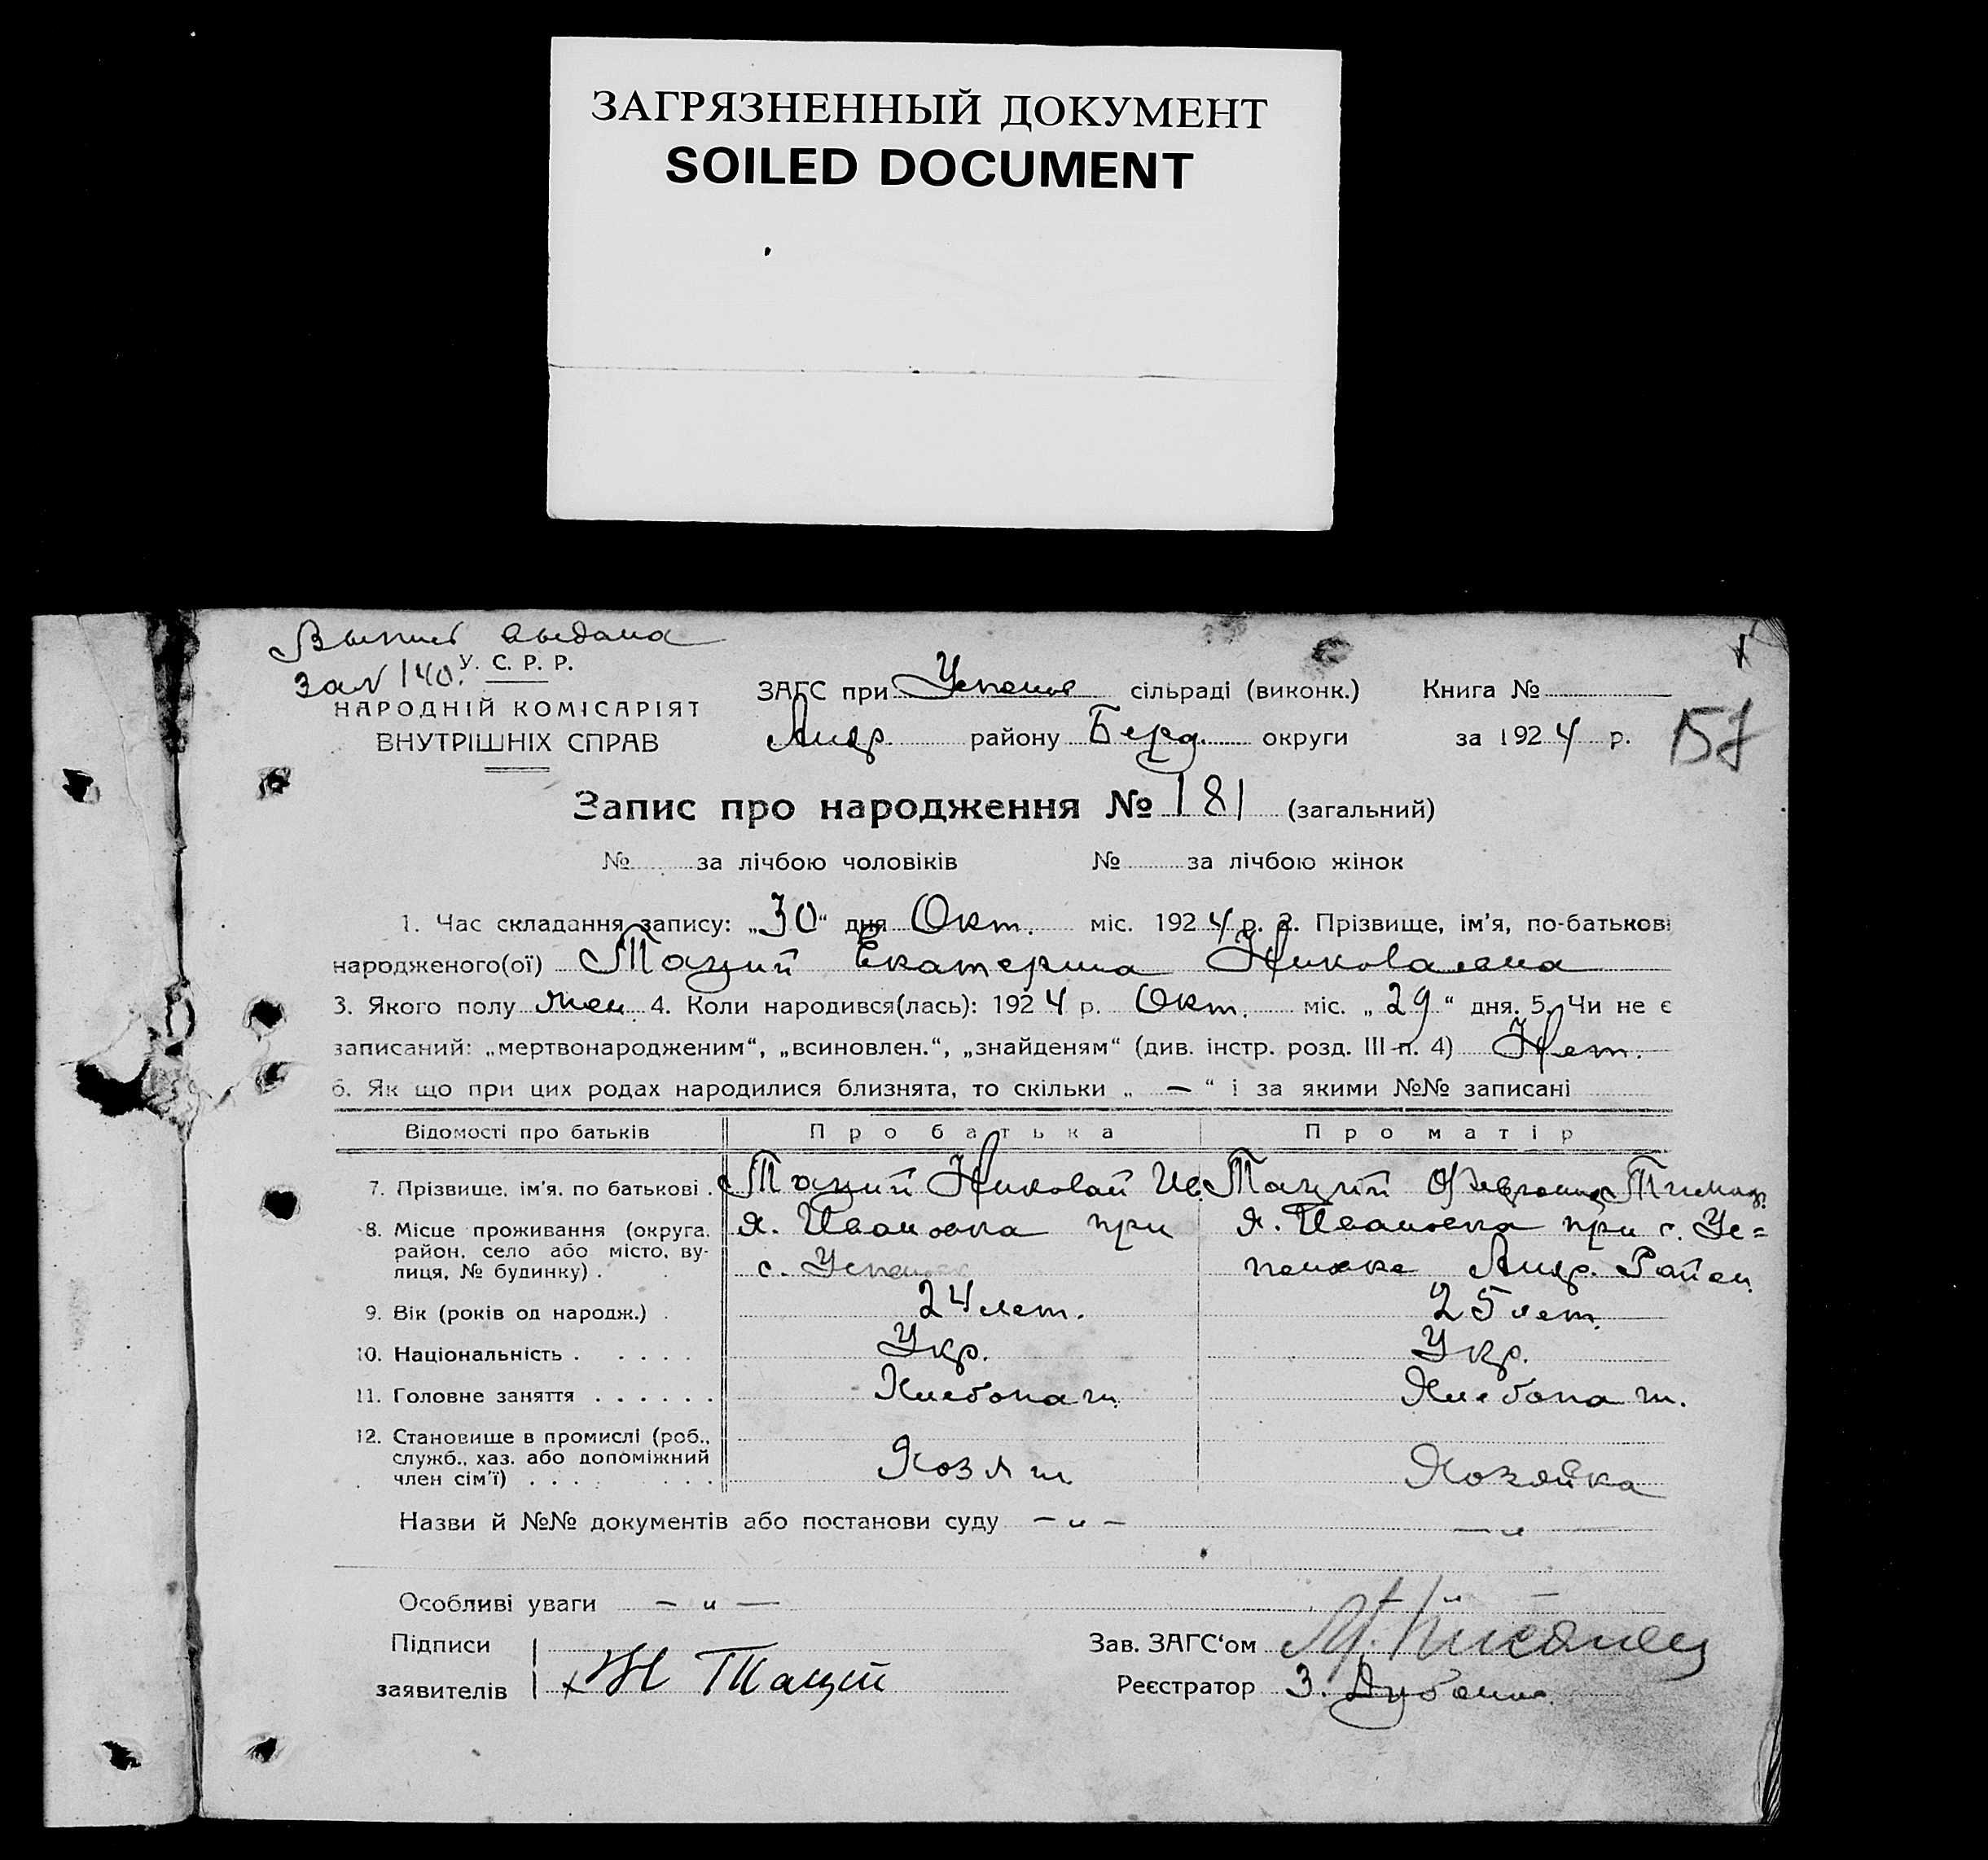 ЗАГРЯЗНЕННЫЙ ДОКУМЕНТ
SOILED DOCUMENT
Выпись выдана
за № 140.
У. С. Р. Р.
НАРОДНІЙ КОМІСАРІЯТ
ВНУТРІШНІХ СПРАВ
ЗАГС при Успенов сільраді (виконк.) Книга №
Андр. району Берд. округи за 1924 р.
157
Запис про народження № 181 (загальний)
№ за лічбою чоловіків № за лічбою жінок
1. Час складання запису: „30“ дня Окт. міс. 1924 р. 2. Прізвище, ім’я, по-батькові
народженого(ої) Таций Екатерина Николаевна
3. Якого полу жен. 4. Коли народився(лась): 1924 р. Окт. міс. „29“ дня. 5. Чи не є
записаний: „мертвонародженим“, „всиновлен.“, „знайденям“ (див. інстр. розд. III п. 4) Нет.
6. Як що при цих родах народилися близнята, то скільки „ — “ і за якими №№ записані
Відомості про батьків Про батька Про матір
7. Прізвище, ім’я, по батькові . Таций Николай Ив. Таций Тимоф.
8. Місце проживання (округа, район, село або місто, вулиця, № будинку) . х. Ивановка при х. Ивановка при с. Ус=
с. Успеновк пеновке Андр. Район.
9. Вік (років од народж.) . 24 лет. 25 лет.
10. Національність . . . . . Укр. Укр.
11. Головне заняття . . . . . . Хлебопаш. Хлебопаш.
12. Становище в промислі (роб., служб., хаз. або допоміжний член сім’ї) . . . . Хозяин Хозяйка
Назви й №№ документів або постанови суду — „ — — „ —
Особливі уваги — „ —
Підписи Зав. ЗАГС‘ом
заявителів х Н Таций Реєстратор З.